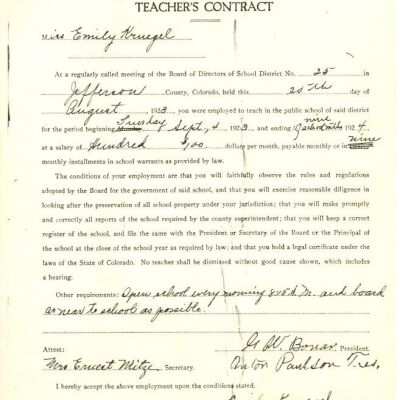 TEACHER'S CONTRACT
Miss Emily Kruegel
At a regularly called meeting of the Board of Directors of School District No. 25 in
Jefferson County, Colorado, held this 25th day of
August 1923, you were employed to teach in the public school of said district
Tuesday nine
for the period beginning Monday Sept, 4 1923, and ending 1924
nine
at a salary of Hundred $100 dollars per month, payable monthly or in
monthly installments in school warrants as provided by law.
The conditions of your employment are that you will faithfully observe the rules and regulations
adopted by the Board for the government of said school, and that you will exercise reasonable diligence in
looking after the preservation of all school property under your jurisdiction; that you will make promptly
and correctly all reports of the school required by the county superintendent; that you will keep a correct
register of the school, and file the same with the President or Secretary of the Board or the Principal of
the school at the close of the school year as required by law; and that you hold a legal certificate under the
laws of the State of Colorado. No teacher shall be dismissed without good cause shown, which includes
a hearing.
Other requirements: Open school every morning 8:45 A.M. and board
as near to school as possible.
G W. Bonar President.
Attest: Anton Paulson Tres.
Mrs. Ernest Mitze Secretary.
I hereby accept the above employment upon the conditions stated.